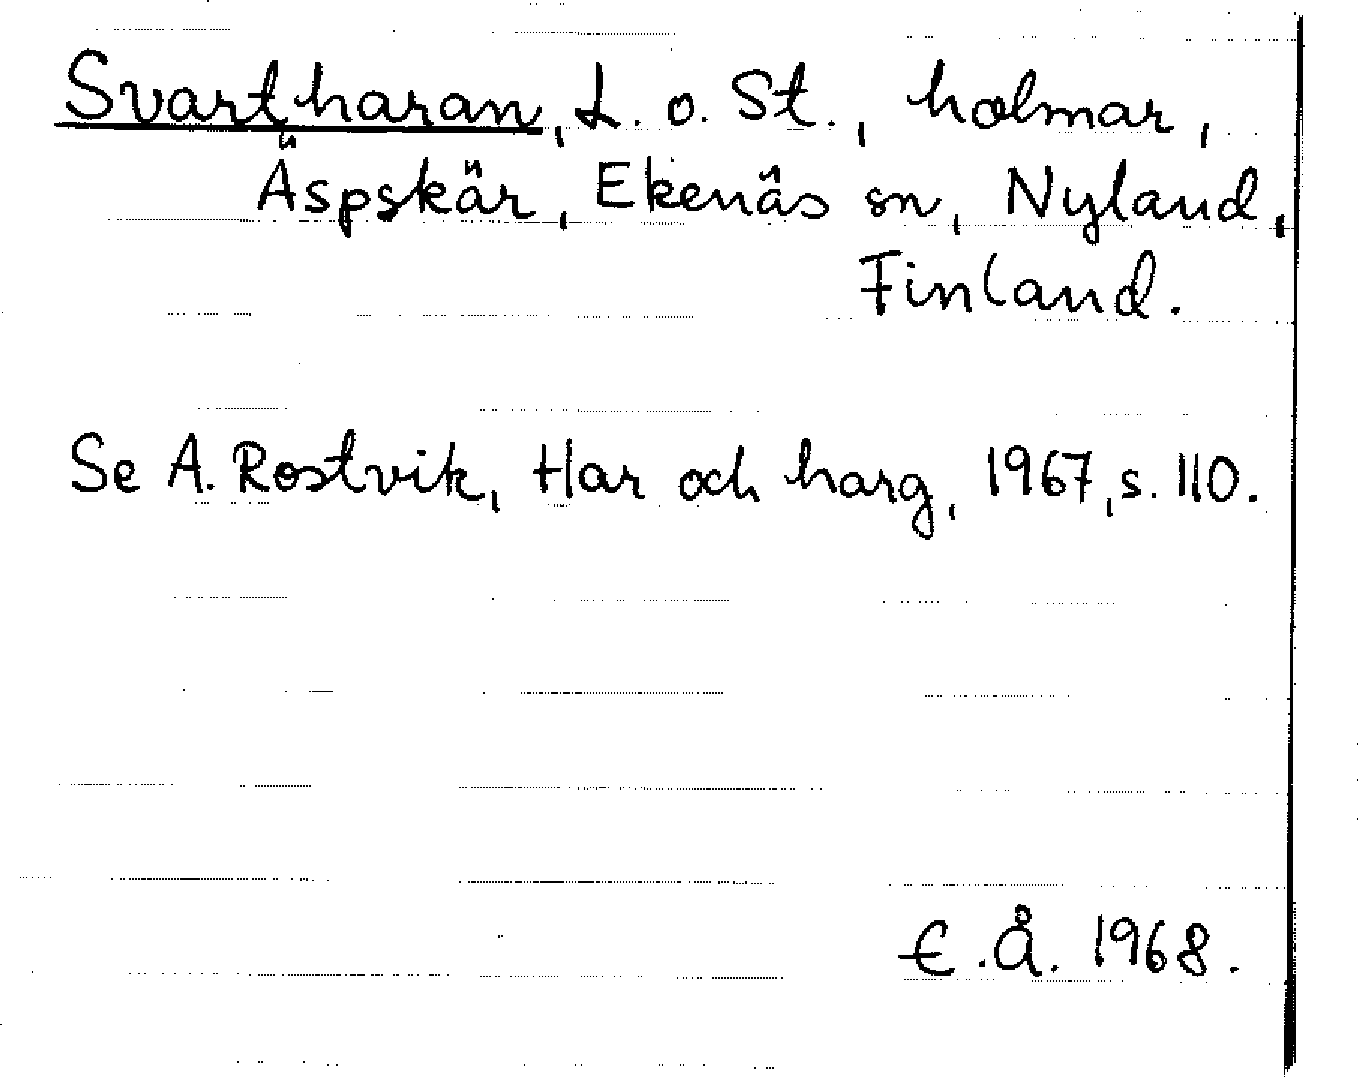 Svartharan, L. o. St., holmar,
Äspskär, Ekenäs sn, Nyland,
Finland.
Se A. Rostvik, Har och harg, 1967, s. 110.
E.Å. 1968.